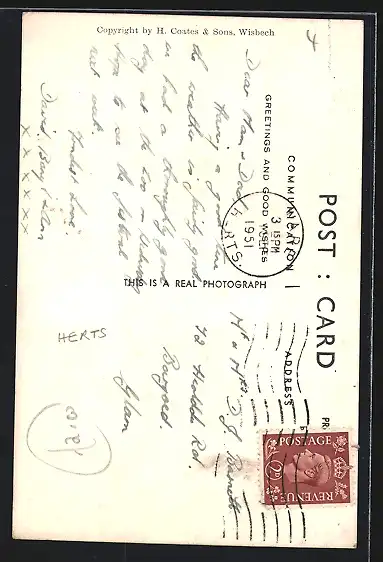 Copyright by H. Coates & Sons, Wisbech
POST : CARD
COMMUNICATION
GREETINGS AND GOOD WISHES
ADDRESS
THIS IS A REAL PHOTOGRAPH
Dear Mam & Dad
Having a good time
the weather is fairly good
we had a thoroughly good
day at the Zoo
hope to see the festival
next week.
Fondest Love
David, Beryl & Alan
x x x x x x
Mr & Mrs. D. J.
72 Rd.
Glam
WARE
3 15 PM
1951
HERTS.
POSTAGE
2D
REVENUE
HERTS